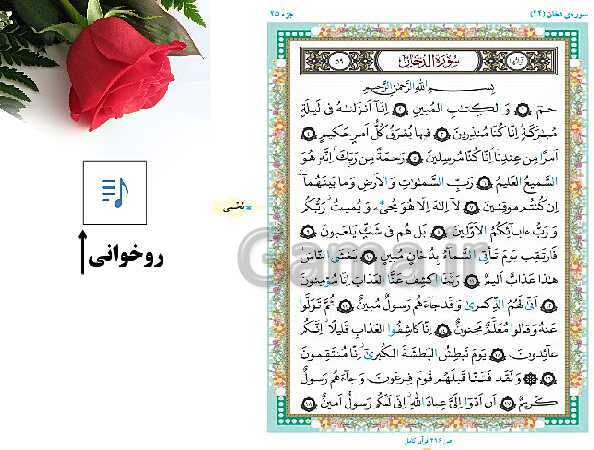 سوره‌ی دخان (۴۴)
جزء ۲۵
سُورَةُ الدُّخَانِ
۵۹
بِسْمِ اللّٰهِ الرَّحْمٰنِ الرَّحِيمِ
حمٓ ۝۱ وَ الْكِتَابِ الْمُبِينِ ۝۲ اِنَّا اَنْزَلْنَاهُ فِی لَيْلَةٍ
مُبَارَكَةٍ اِنَّا كُنَّا مُنْذِرِينَ ۝۳ فِيهَا يُفْرَقُ كُلُّ اَمْرٍ حَكِيمٍ ۝۴
اَمْرًا مِنْ عِنْدِنَا اِنَّا كُنَّا مُرْسِلِينَ ۝۵ رَحْمَةً مِنْ رَبِّكَ اِنَّهُ هُوَ
السَّمِيعُ الْعَلِيمُ ۝۶ رَبِّ السَّمَاوَاتِ وَ الْاَرْضِ وَ مَا بَيْنَهُمَا
اِنْ كُنْتُمْ مُوقِنِينَ ۝۷ لَا اِلٰهَ اِلَّا هُوَ يُحْيی وَ يُمِيتُ رَبُّكُمْ
وَ رَبُّ ءَابَائِكُمُ الْاَوَّلِينَ ۝۸ بَلْ هُمْ فِی شَكٍّ يَلْعَبُونَ ۝۹
فَارْتَقِبْ يَوْمَ تَأْتِی السَّمَاءُ بِدُخَانٍ مُبِينٍ ۝۱۰ يَغْشَی النَّاسَ
هٰذَا عَذَابٌ اَلِيمٌ ۝۱۱ رَبَّنَا اكْشِفْ عَنَّا الْعَذَابَ اِنَّا مُؤْمِنُونَ
۝۱۲ اَنّٰی لَهُمُ الذِّكْرٰی وَ قَدْ جَاءَهُمْ رَسُولٌ مُبِينٌ ۝۱۳ ثُمَّ تَوَلَّوْا
عَنْهُ وَ قَالُوا مُعَلَّمٌ مَجْنُونٌ ۝۱۴ اِنَّا كَاشِفُوا الْعَذَابِ قَلِيلًا اِنَّكُمْ
عَائِدُونَ ۝۱۵ يَوْمَ نَبْطِشُ الْبَطْشَةَ الْكُبْرٰی اِنَّا مُنْتَقِمُونَ
۝۱۶ وَ لَقَدْ فَتَنَّا قَبْلَهُمْ قَوْمَ فِرْعَوْنَ وَ جَاءَهُمْ رَسُولٌ
كَرِيمٌ ۝۱۷ اَنْ اَدُّوا اِلَیَّ عِبَادَ اللّٰهِ اِنِّی لَكُمْ رَسُولٌ اَمِينٌ ۝۱۸
ص ۴۹۶ قرآن کامل
روخوانی
Gama.ir